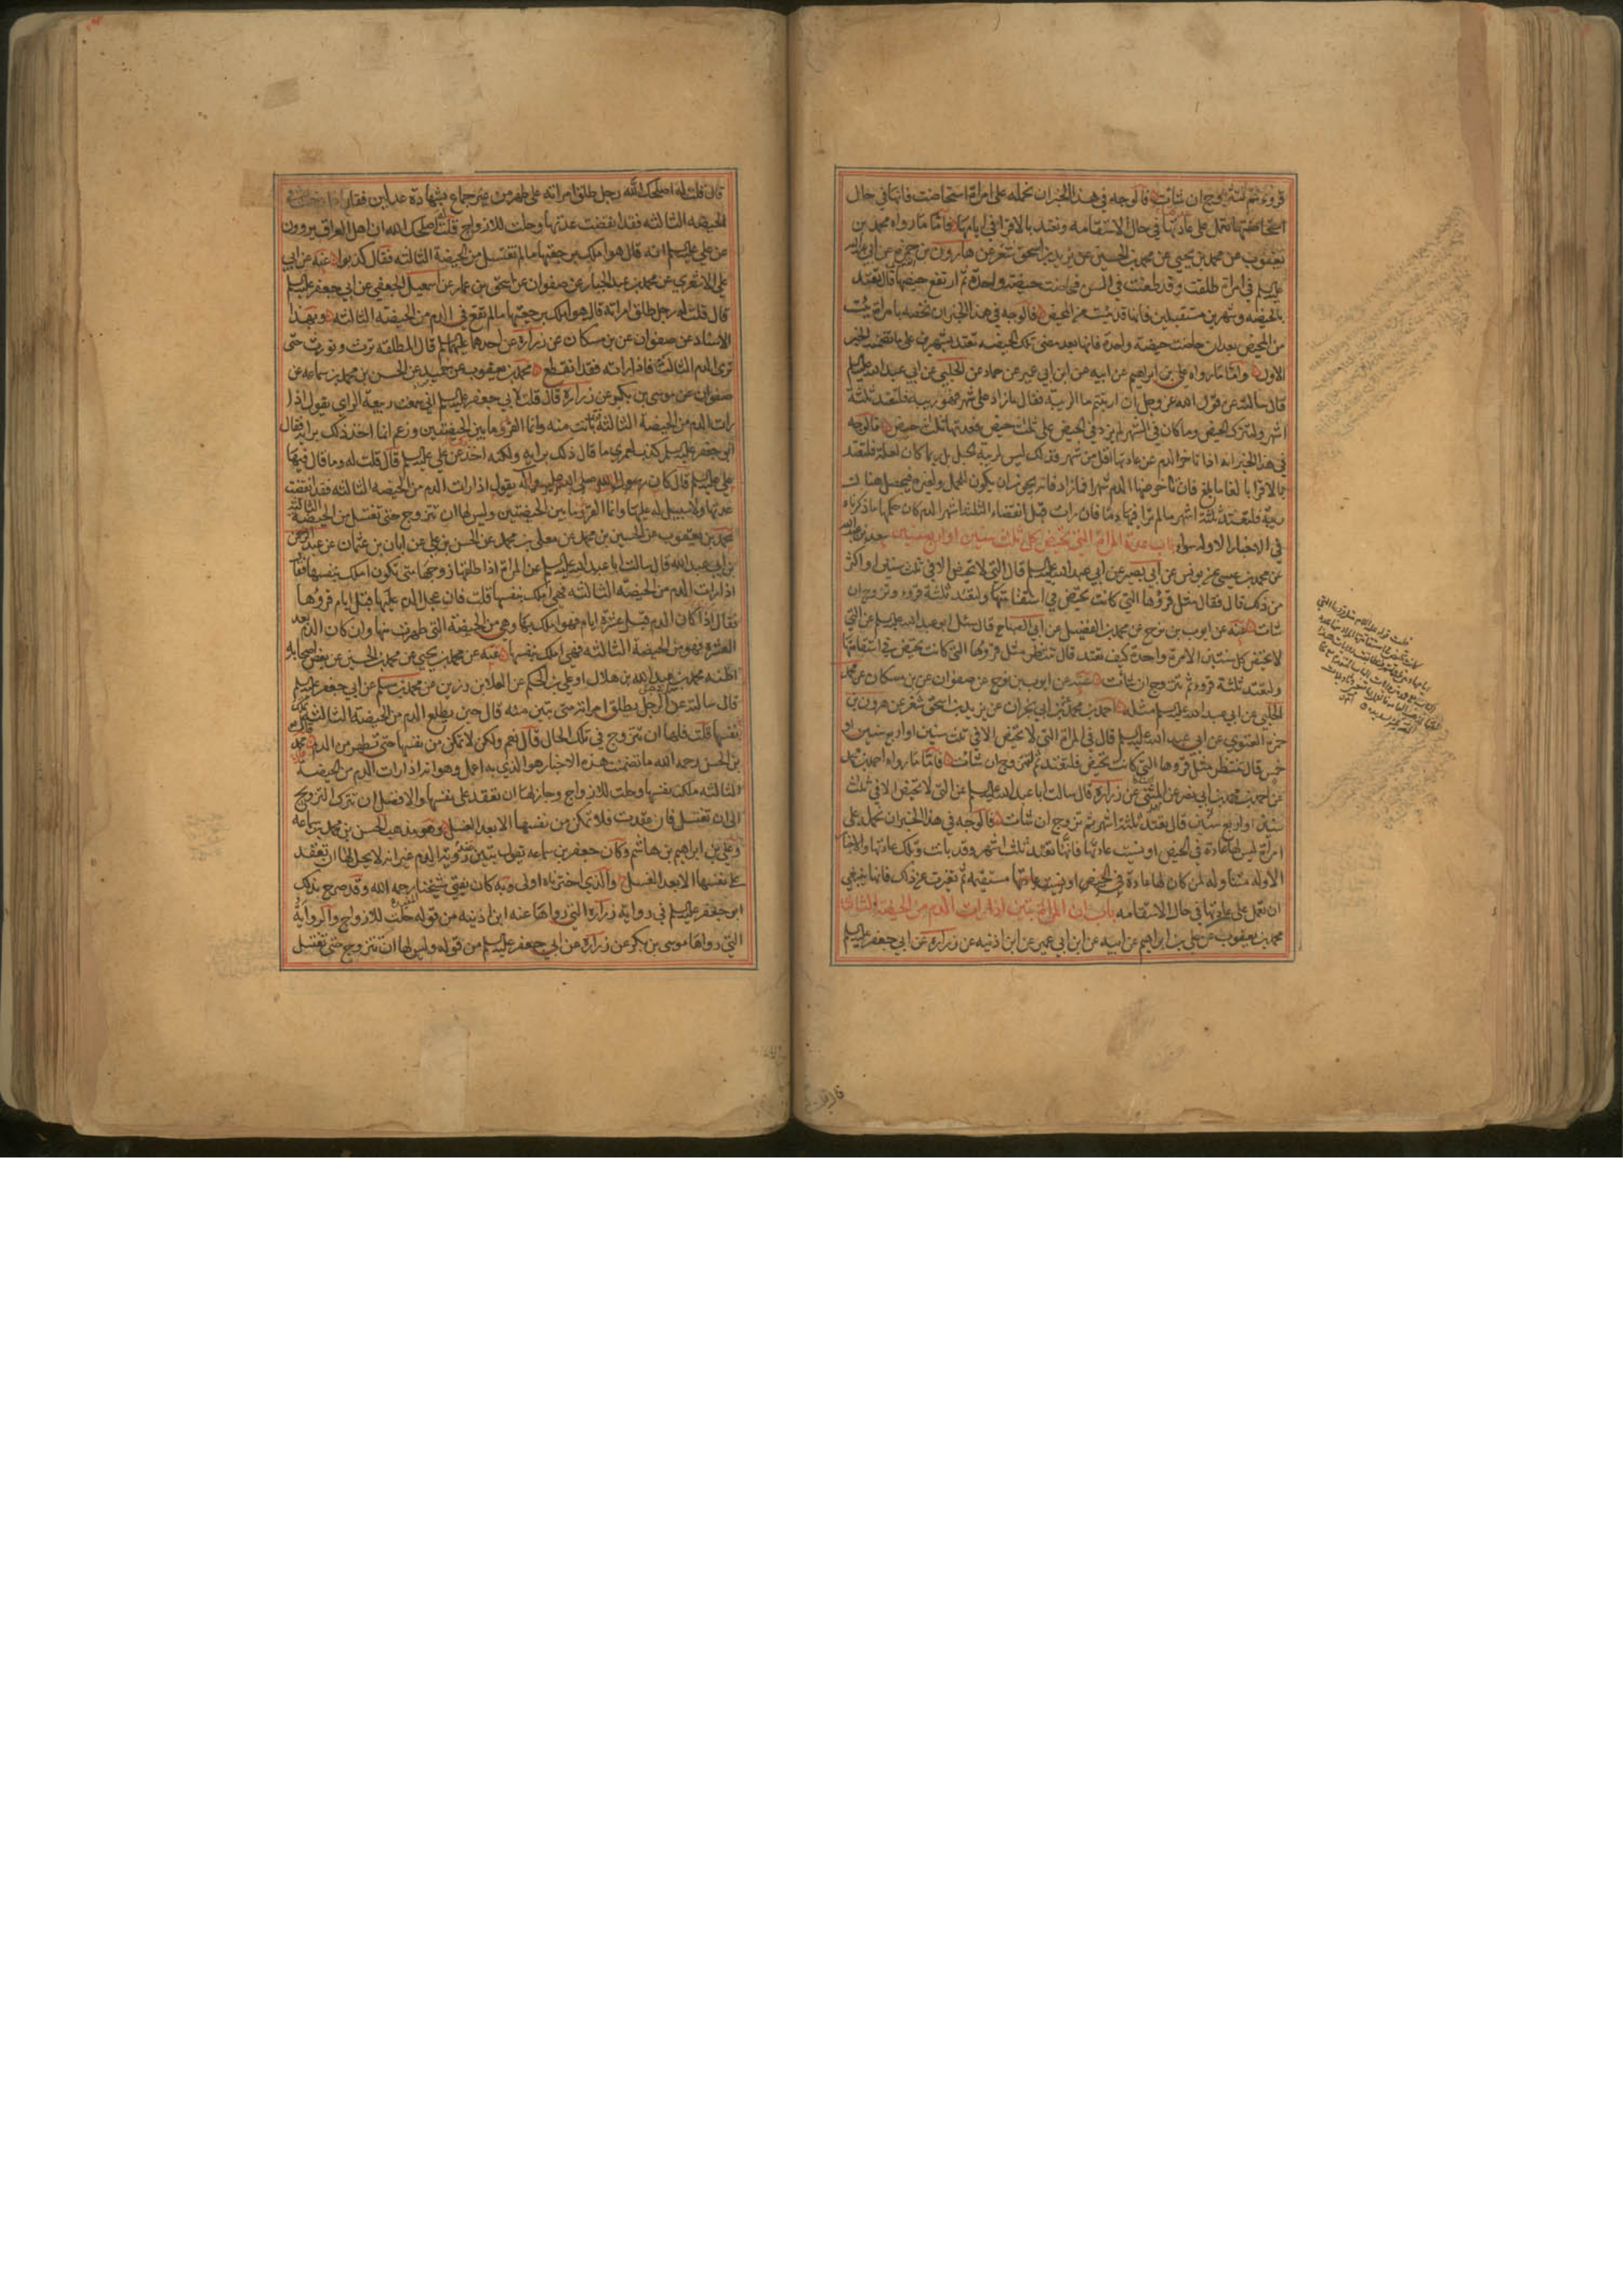 قروء ثم تتزوج ان شاءت فالوجه في هذا الخبر ان نحمله على امراة استحاضت فانها في حال
استحاضتها تعمل على عادتها في حال الاستقامه وتعتد بالاقرا في ايامها فاما ما رواه محمد بن
يعقوب عن محمد بن يحيى عن محمد بن الحسين عن يزيد بن اسحق شعر عن هارون بن حمزه عن ابي عبدالله
عليه السلم في امراة طلقت وقد طعنت في السن فحاضت حيضة واحدة ثم ارتفع حيضها قال تعتد
بالحيضه وشهرين مستقبلين فانها قد يئست من المحيض فالوجه في هذا الخبر ان نخصه بامراة يئست
من المحيض بعد ان حاضت حيضة واحدة فانها بعد مضي تلك الحيضه تعتد بشهرين على ما تضمنه الخبر
الاول واما ما رواه علي بن ابرهيم عن ابيه عن ابن ابي عمير عن حماد عن الحلبي عن ابي عبد الله عليه السلم
قال سالته عن قول الله عز وجل ان ارتبتم ما الريبة فقال ما زاد على شهر فهو ريبة فلتعتد ثلثة
اشهر ولتترك الحيض وما كان في الشهر لم يزد في الحيض على ثلث حيض فعدتها ثلث حيض فالوجه
في هذا الخبر انه اذا تاخر الدم عن عادتها اقل من شهر فذلك ليس لريبة الحبل بل ربما كان لعلة فلتعتد
بالاقرا بالغا ما بلغ فان تاخر عنها الدم شهرا فما زاد فانه يجوز ان يكون للحمل ولغيره فيحصل هناك
ريبة فلتعتد ثلثة اشهر ما لم تر فيها دما فان رات قبل انقضاء الثلثة اشهر الدم كان حكمها ما ذكرناه
في الاخبار الاوله سواء باب عدة المراة التي تحيض كل ثلث سنين او اربع سنين سعد بن عبدالله
عن محمد بن عيسى عن يونس عن ابي بصير عن ابي عبد الله عليه السلم قال التي لا تحيض الا في ثلث سنين او اكثر
من ذلك قال فقال مثل قروها التي كانت تحيض في استقامتها ولتعتد ثلثة قروء وتزوج ان
شات عنه عن ايوب بن نوح عن محمد بن الفضيل عن ابي الصباح قال سئل ابو عبد الله عليه السلم عن التي
لا تحيض كل سنتين الا مرة واحدة كيف تعتد قال تنتظر مثل قروها التي كانت تحيض في استقامتها
ولتعتد ثلثة قروء ثم تتزوج ان شات عنه عن ايوب بن نوح عن صفوان عن بن مسكان عن محمد
الحلبي عن ابي عبد الله عليه السلم مثله احمد بن محمد بن ابي نجران عن يزيد بن اسحق شعر عن هرون بن
حمزة الغنوي عن ابي عبد الله عليه السلم قال في المراة التي لا تحيض الا في ثلث سنين او اربع سنين او
خمس قال تنتظر مثل قروها التي كانت تحيض فلتعتد ثم تتزوج ان شات فاما ما رواه احمد بن محمد
عن احمد بن محمد بن ابي نصر عن المثنى عن زرارة قال سالت ابا عبد الله عليه السلم عن التي لا تحيض الا في ثلث
سنين او اربع سنين قال تعتد ثلثة اشهر ثم تزوج ان شات فالوجه في هذا الخبر ان نحمله على
امراة ليس لها عادة في الحيض او نسيت عادتها فانها تعتد ثلث اشهر وقد بانت وتلك عادتها والاخبار
الاوله متناوله لمن كان لها عادة في الحيض مستقيمه ثم تغيرت عن ذلك فانها ينبغي
ان تعمل على عادتها في حال الاستقامه باب ان المراة تبين اذا رات الدم من الحيضة الثالثة
محمد بن يعقوب عن علي بن ابراهيم عن ابيه عن ابن ابي عمير عن ابن اذنيه عن زرارة عن ابي جعفر عليه السلم
قال قلت له اصلحك الله رجل طلق امراته على طهر من غير جماع بشهادة عدلين فقال اذا دخلت في
الحيضه الثالثه فقد انقضت عدتها وحلت للازواج قلت له اصلحك الله ان اهل العراق يروون
عن علي عليه السلم انه قال هو املك برجعتها ما لم تغتسل من الحيضة الثالثه فقال كذبوا عنه عن ابي
علي الاشعري عن محمد بن عبد الجبار عن صفوان عن اسحق بن عمار عن اسمعيل الجعفي عن ابي جعفر عليه السلم
قال قلت له رجل طلق امراته قال هو املك برجعتها ما لم تقع في الدم من الحيضه الثالثه وبهذا
الاسناد عن صفوان عن بن مسكان عن زرارة عن احدهما عليهما السلم قال المطلقه ترث وتورث حتى
ترى الدم الثالث فاذا راته فقد انقطع محمد بن يعقوب عن حميد عن الحسن بن محمد بن سماعه عن
صفوان عن موسى بن بكر عن زرارة قال قلت لابي جعفر عليه السلم اني سمعت ربيعة الراي يقول اذا
رات الدم من الحيضة الثالثة بانت منه وانما القرؤ ما بين الحيضتين وزعم انما اخذ ذلك برايه فقال
ابو جعفر عليه السلم كذب لعمري ما قال ذلك برايه ولكنه اخذ عن علي عليه السلم قال قلت له وما قال فيها
علي عليه السلم قال كان يقول اذا رات الدم من الحيضه الثالثه فقد انقضت
عدتها ولا سبيل له عليها وانما القرؤ ما بين الحيضتين وليس لها ان تتزوج حتى تغتسل من الحيضة الثالثة
محمد بن يعقوب عن الحسين بن محمد عن معلى بن محمد عن الحسن بن علي عن ابان بن عثمان عن عبد الرحمن
بن ابي عبد الله قال سالت ابا عبد الله عليه السلم عن المراة اذا طلقها زوجها متى تكون املك بنفسها فقال
اذا رات الدم من الحيضه الثالثه فهي املك بنفسها قلت فان عجل الدم عليها قبل ايام قروها
فقال اذا كان الدم قبل عشرة ايام فهو املك بها وهي من الحيضة التي طهرت منها وان كان الدم بعد
العشره فهو من الحيضة الثالثه فهي املك بنفسها عنه عن محمد بن يحيى عن محمد بن الحسين عن بعض اصحابه
اظنه محمد بن عبد الله بن هلال او علي بن الحكم عن العلا بن رزين عن محمد بن مسلم عن ابي جعفر عليه السلم
قال سالته عن الرجل يطلق امراته متى تبين منه قال حين يطلع الدم من الحيضة الثالثة تملك
نفسها قلت فلها ان تتزوج في تلك الحال قال نعم ولكن لا تمكن من نفسها حتى تطهر من الدم قال محمد
بن الحسن رحمه الله ما تضمنت هذه الاخبار هو الذي به اعمل وهو انه اذا رات الدم من الحيضه
الثالثه ملكت نفسها وحلت للازواج وجاز لها ان تعقد على نفسها والافضل ان تترك التزويج
الى ان تغتسل فان عقدت فلا تمكن من نفسها الا بعد الغسل وهو مذهب الحسن بن محمد بن سماعه
وعلي بن ابراهيم بن هاشم وكان جعفر بن سماعه تقول تبين عند رؤية الدم غير انه لا يحل لها ان تعقد
على نفسها الا بعد الغسل والذي اخترناه اولى وبه كان يفتي شيخنا رحمه الله وقد صرح بذلك
ابو جعفر عليه السلم في رواية زرارة التي رواها عنه ابن اذنيه من قوله حلت للازواج والرواية
التي رواها موسى بن بكر عن زرارة عن ابي جعفر عليه السلم من قوله وليس لها ان تتزوج حتى تغتسل